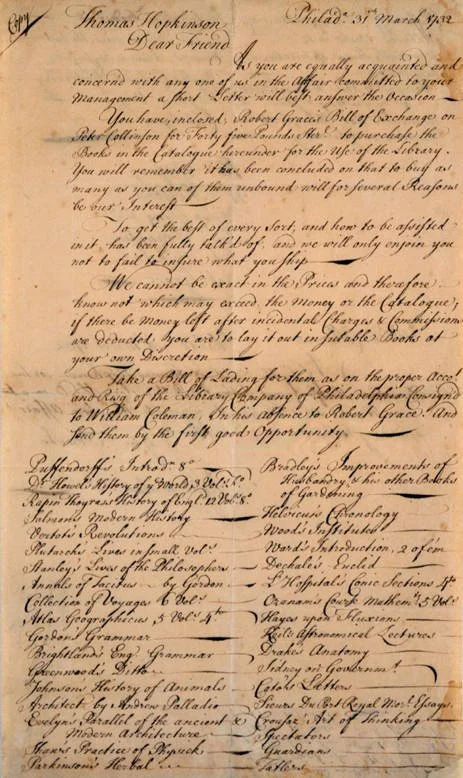 Copy
Philad.ᵃ 31ˢᵗ March 1732
Thomas Hopkinson
Dear Friend
As you are equally acquainted and
concernd with any one of us in the Affair committed to your
Management a short Letter will best answer the Occasion —
You have, inclosed, Robert Grace's Bill of Exchange on
Peter Collinson for Forty five Pounds Sterˡ. to purchase the
Books in the Catalogue hereunder for the Use of the Library.
You will remember it has been concluded on that to buy as
many as you can of them unbound will for several Reasons
be our Interest —
To get the best of every Sort, and how to be assisted
in it, has been fully talk'd of, and we will only enjoin you
not to fail to insure what you ship —
We cannot be exact in the Prices and therefore
know not which may exceed, the Money or the Catalogue;
if there be Money left after incidental Charges & Commissions
are deducted, you are to lay it out in suitable Books at
your own Discretion —
Take a Bill of Lading for them as on the proper Accoᵗ
and Risq of the Library Company of Philadelphia Consign'd
to William Coleman, in his Absence to Robert Grace. And
send them by the first good Opportunity —
Puffendorff's Introdⁿ 8º
Dʳ Howel's History of yᵉ World, 3 Volˢ
Rapin Thoyras's History of Englᵈ 12 Volˢ 8º
Salmon's Modern History
Vertot's Revolutions
Plutarch's Lives in small Volˢ
Stanley's Lives of the Philosophers
Annals of Tacitus by Gordon
Collection of Voyages 6 Volˢ
Atlas Geographicus 5 Volˢ 4ᵗᵒ
Gordon's Grammar
Brightland's Eng. Grammar
Greenwood's Ditto
Johnson's History of Animals
Architectᵉ by Andrew Palladio
Evelyn's Parallel of the ancient &
Modern Architecture
Shaw's Practice of Physick
Parkinson's Herbal
Bradley's Improvements of
Husbandry, & his other Books
of Gardening
Helvicus's Chronology
Wood's Institutes
Ward's Introduction, 2 of 'em
Dechales's Euclid
L'Hospital's Conic Sections 4ᵗᵒ
Ozanam's Course Mathemᵗ 5 Volˢ
Hayes upon Fluxions
Keil's Astronomical Lectures
Drake's Anatomy
Sidney on Governmᵗ
Cato's Letters
Sieurs Du Port Royal Morˡ Essays
Crousaz's Art of Thinking
Spectators
Guardians
Tatlers